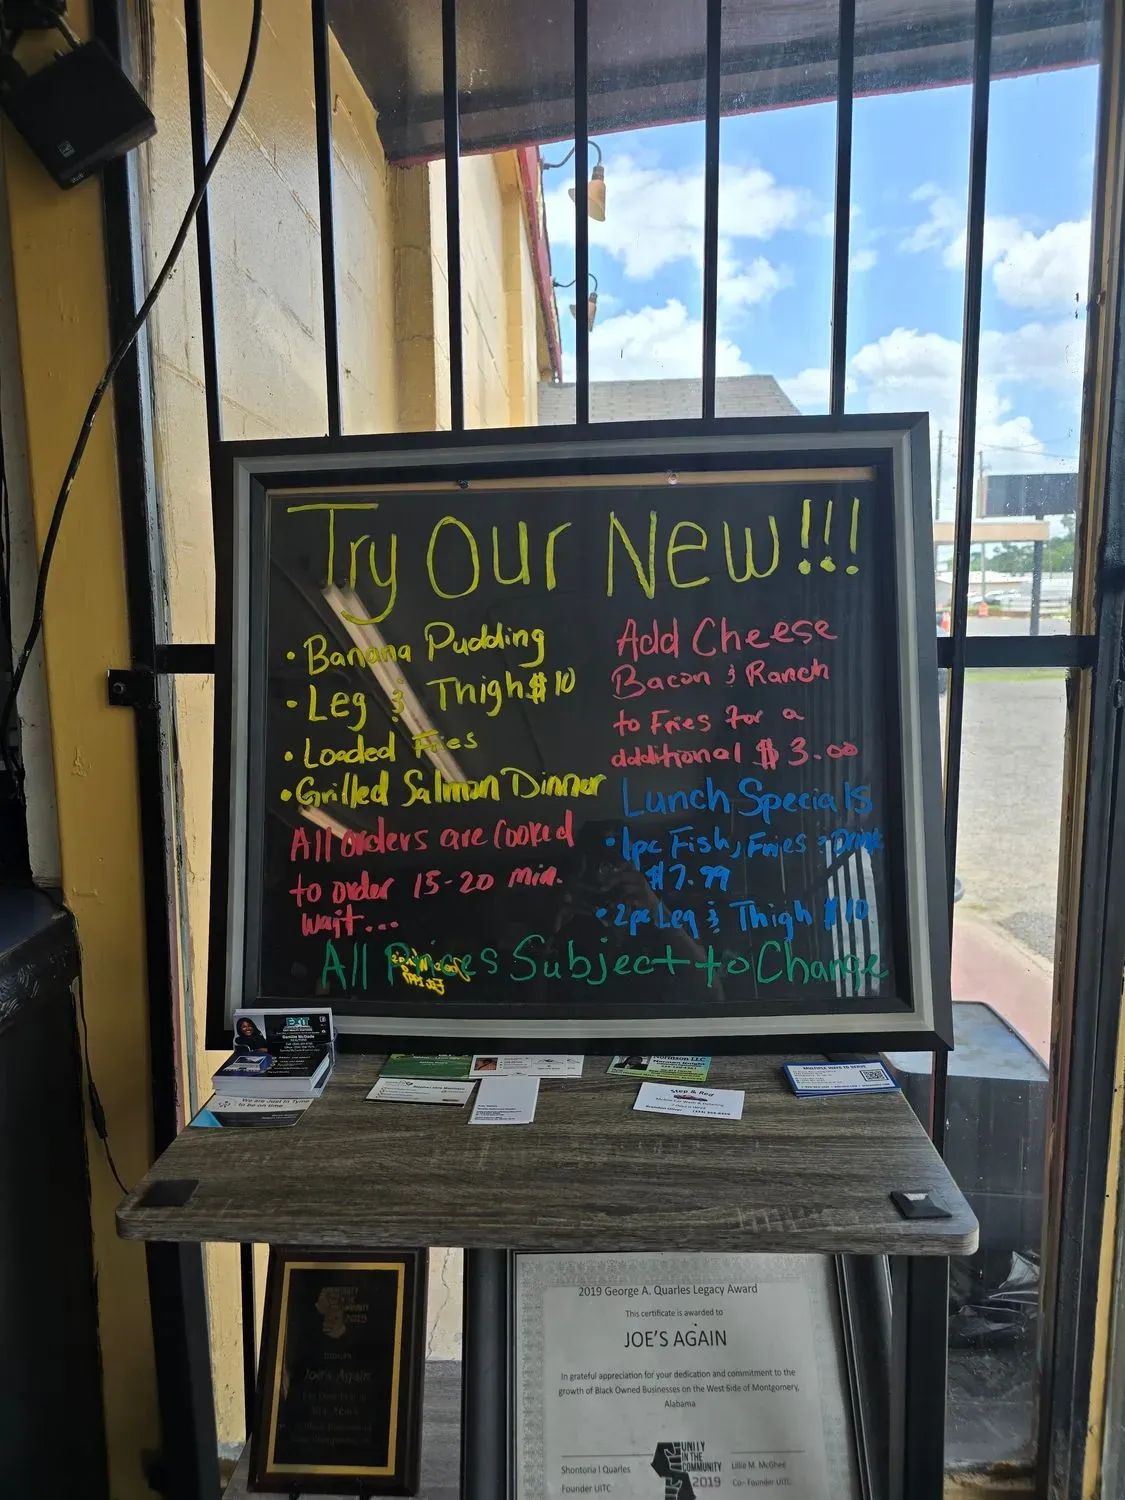 Try Our New!!!
• Banana Pudding
• Leg & Thigh $10
• Loaded Fries
• Grilled Salmon Dinner
All orders are cooked
to order 15-20 min.
wait...
Add Cheese
Bacon & Ranch
to Fries for a
additional $3.00
Lunch Specials
• 1pc Fish, Fries & Drink
$7.99
• 2pc Leg & Thigh $10
All Prices Subject to Change
EXIT
We are Just in Tyme
to be on time
MULTIPLE WAYS TO SERVE
UNITY
IN THE
COMMUNITY
2019
Joe's Again
2019 George A. Quarles Legacy Award
This certificate is awarded to
JOE'S AGAIN
In grateful appreciation for your dedication and commitment to the
growth of Black Owned Businesses on the West Side of Montgomery,
Alabama
Shontoria I Quarles
Founder UITC
UNITY
IN THE
COMMUNITY
2019
Lillie M. McGhee
Co- Founder UITC